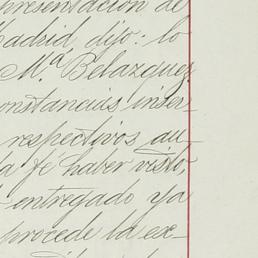 presentacion de
Madrid, dijo: lo
M.ª Belazquez
onstancias inser-
respectivos au-
da fe haber visto,
entregado ya
procede la ex-